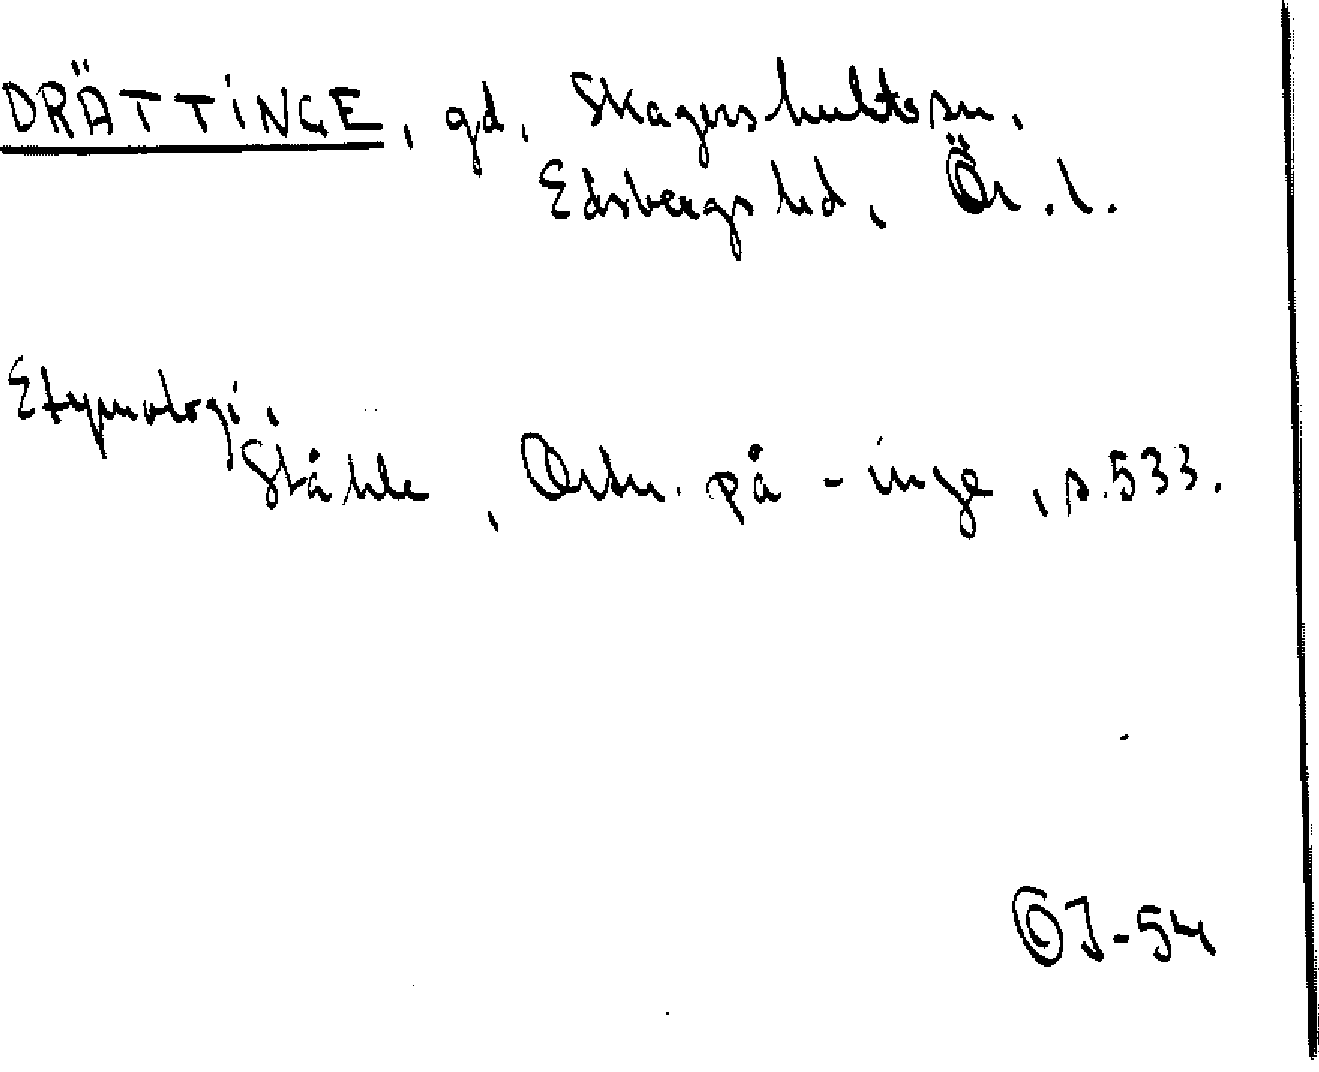 DRÄTTINGE, gd, Skagershults sn,
Edsbergs hd, Ör.l.
Etymologi,
Ståhle, Ortn. på -inge, s.533.
OJ-54